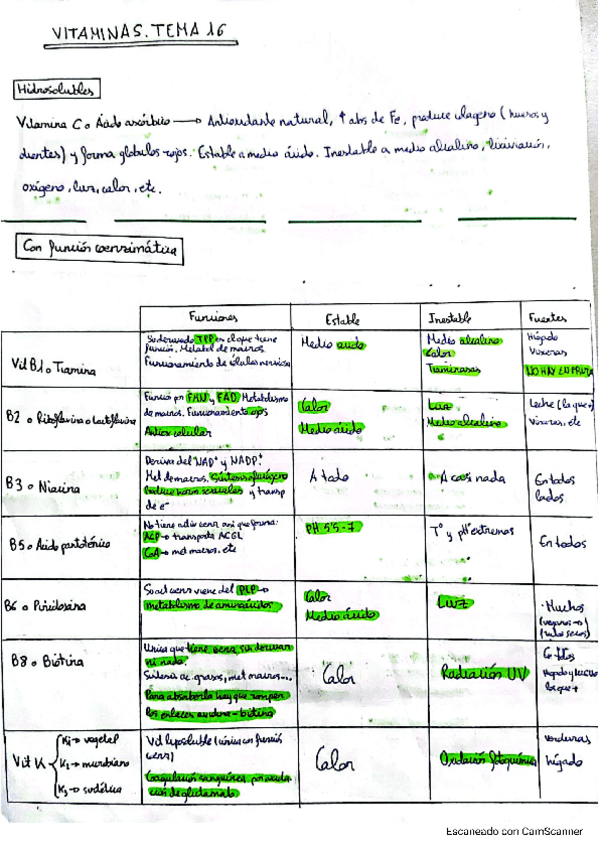 VITAMINAS. TEMA 16
Hidrosolubles
Vitamina C o Ácido ascórbico → Antioxidante natural, ↑ abs de Fe, produce colágeno (huesos y
dientes) y forma glóbulos rojos. Estable a medio ácido. Inestable a medio alcalino, lixiviación,
oxígeno, luz, calor, etc.
Con función coenzimática
Funciones
Estable
Inestable
Fuentes
Vit B1 o Tiamina
Su derivado TPP es el que tiene
función. Metabol de macros.
Funcionamiento de células nerviosa
Medio ácido
Medio alcalino
Calor
Tiaminasas
Hígado
Vísceras
NO HAY EN FRUTA
B2 o Riboflavina o Lactoflavina
Función por FMN y FAD. Metabolismo
de macros. Funcionamiento ojos
Antiox celular
Calor
Medio ácido
Luz
Medio alcalino
Leche (la que +)
Vísceras, etc
B3 o Niacina
Deriva del NAD+ y NADP+
Met de macros.
y transp
de e-
A todo
A casi nada
En todos
lados
B5 o Ácido pantoténico
No tiene activ cenz así que forma:
ACP → transporta ACGL
CoA → met macros, etc
PH 5'5-7
Tº y pH extremos
En todos
B6 o Piridoxina
Su act cenz viene del PLP →
metabolismo de aminoácidos
Calor
Medio ácido
LUZ
Muchos
B8 o Biotina
Única que tiene cenz sin derivar
ni nada.
Síntesis ac. grasos, met macros...
Para absorberla hay que romper
los enlaces avidina-biotina
Calor
Radiación UV
Hígado y
la que +
Vit K
K1 → vegetal
→ microbiano
K3 → sintética
Vit liposoluble (única con función
cenz)
Coagulación sanguínea, por
ción de glutamato.
Calor
Oxidación fotoquímica
Verduras
hígado
Escaneado con CamScanner